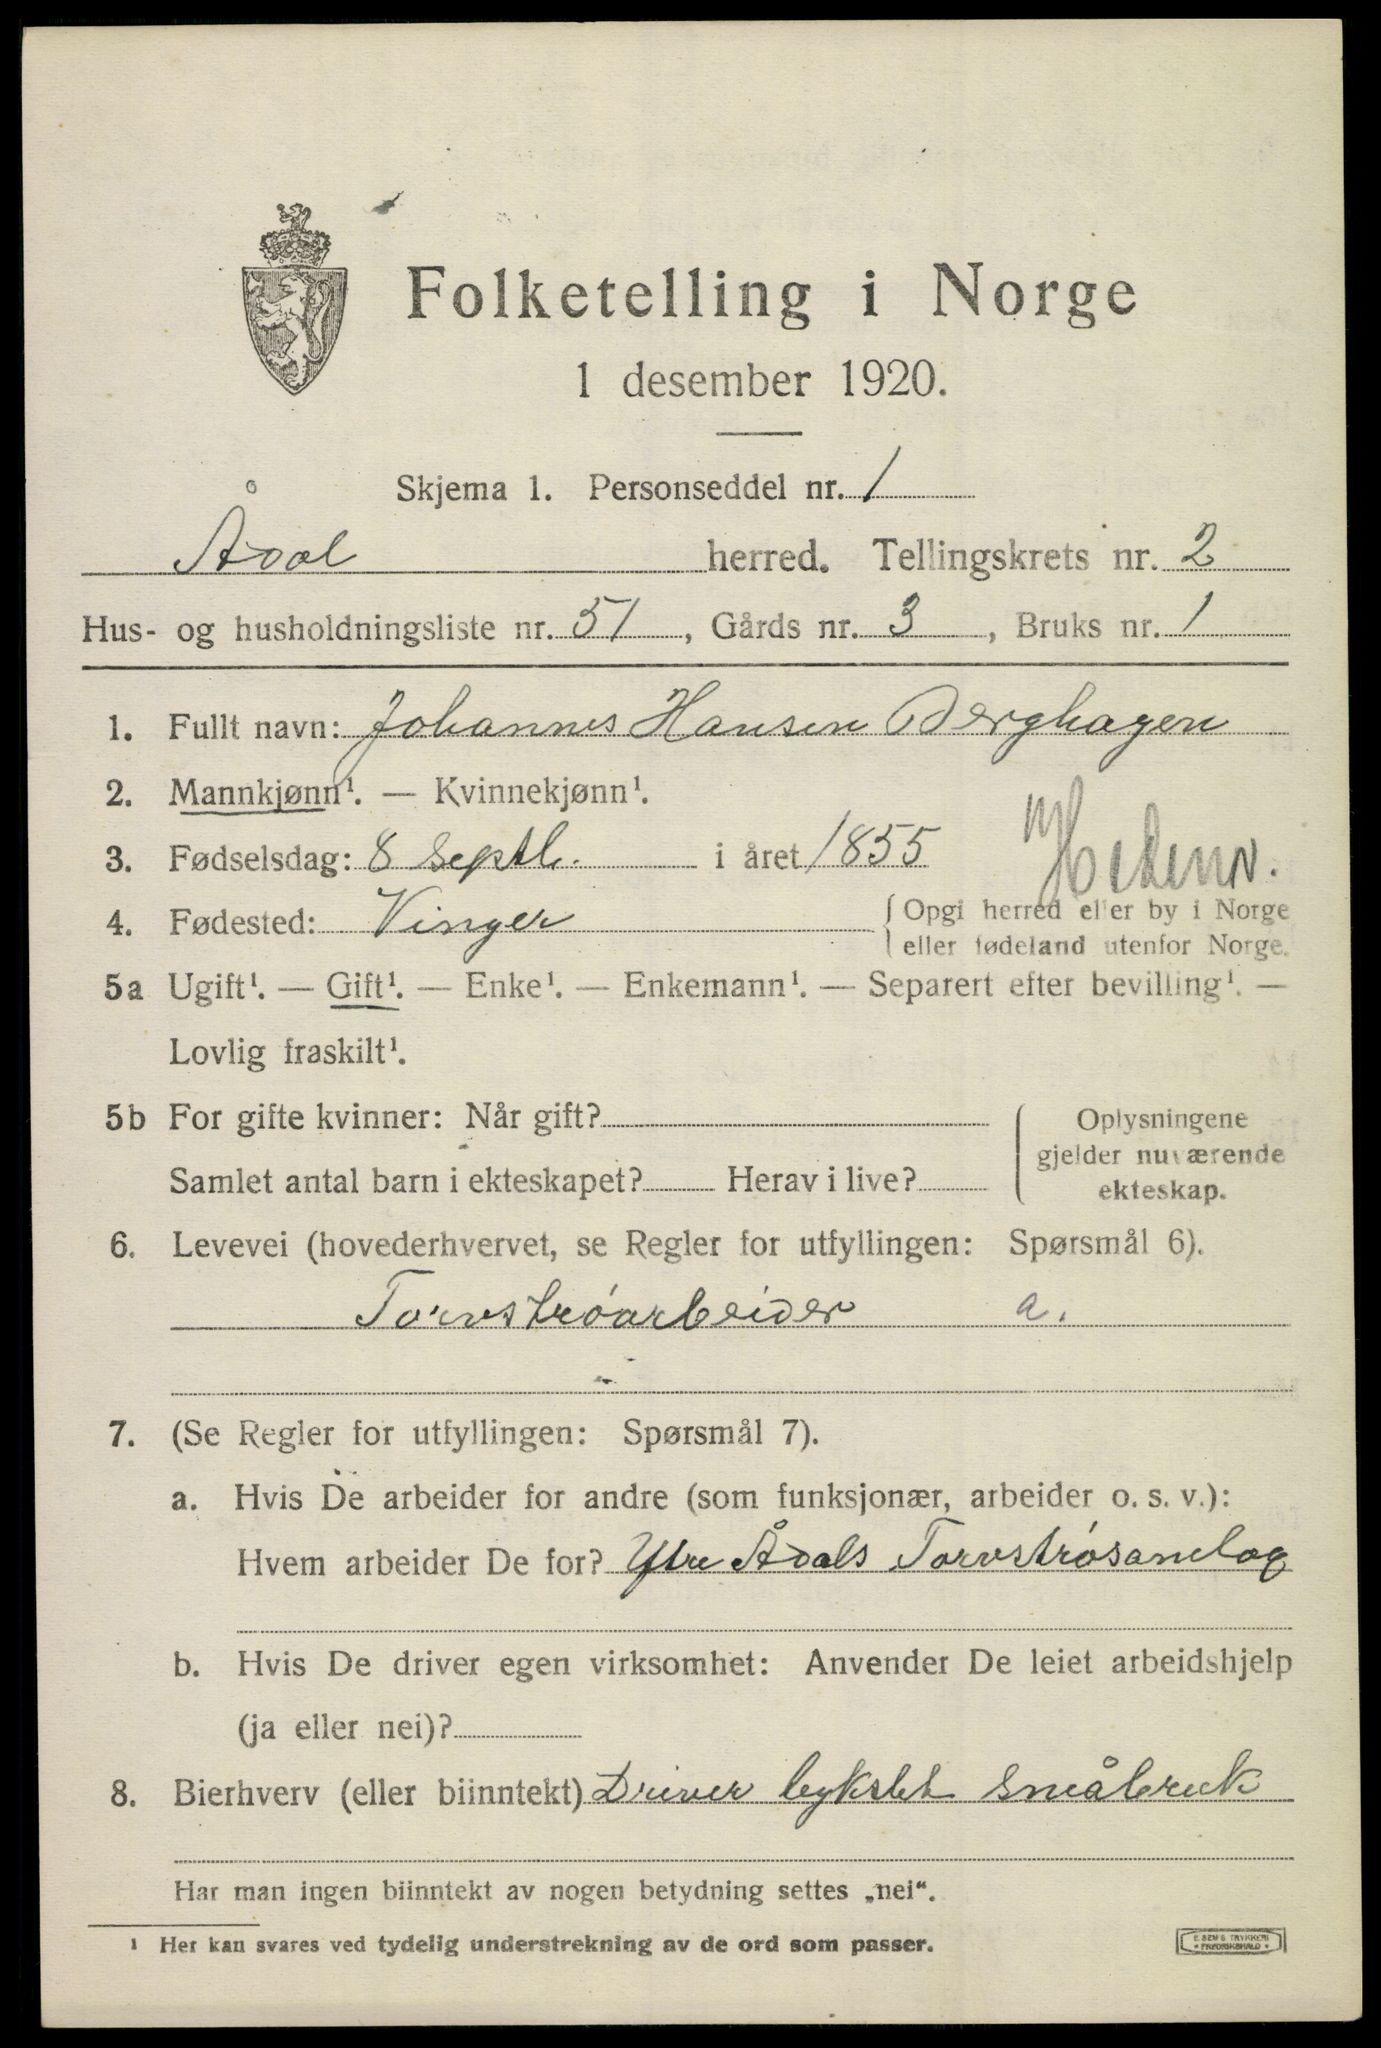 Folketelling i Norge
1 desember 1920.
Skjema 1. Personseddel nr. 1
Ådal herred. Tellingskrets nr. 2
Hus- og husholdningsliste nr. 51, Gårds nr. 3, Bruks nr. 1
1. Fullt navn: Johannes Hansen Berghagen
2. Mannkjønn¹. — Kvinnekjønn¹.
3. Fødselsdag: 8 Septb. i året 1855
Hedm.
4. Fødested: Vinger { Opgi herred eller by i Norge
eller fødeland utenfor Norge.
5a Ugift¹. — Gift¹. — Enke¹. — Enkemann¹. — Separert efter bevilling¹. —
Lovlig fraskilt¹.
5b For gifte kvinner: Når gift? { Oplysningene
gjelder nuværende
Samlet antal barn i ekteskapet? Herav i live? ekteskap.
6. Levevei (hovederhvervet, se Regler for utfyllingen: Spørsmål 6).
Torvstróarbeider a.
7. (Se Regler for utfyllingen: Spørsmål 7).
a. Hvis De arbeider for andre (som funksjonær, arbeider o. s. v.):
Hvem arbeider De for? Ytre Ådals Torvstrøsamlag
b. Hvis De driver egen virksomhet: Anvender De leiet arbeidshjelp
(ja eller nei)?
8. Bierhverv (eller biinntekt) Driver bykslet småbruk
Har man ingen biinntekt av nogen betydning settes „nei“.
¹ Her kan svares ved tydelig understrekning av de ord som passer.
E. SEM'S TRYKKERI
FREDRIKSHALD